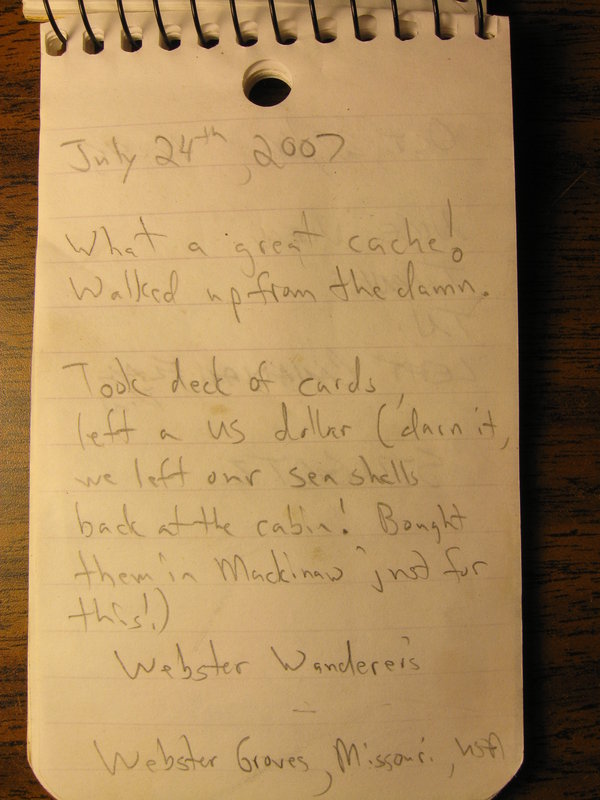 July 24th, 2007
What a great cache!
Walked up from the damn.
Took deck of cards,
left a US dollar (darn it,
we left our sea shells
back at the cabin! Bought
them in Mackinaw just for
this!)
Webster Wanderers
Webster Groves, Missouri, USA